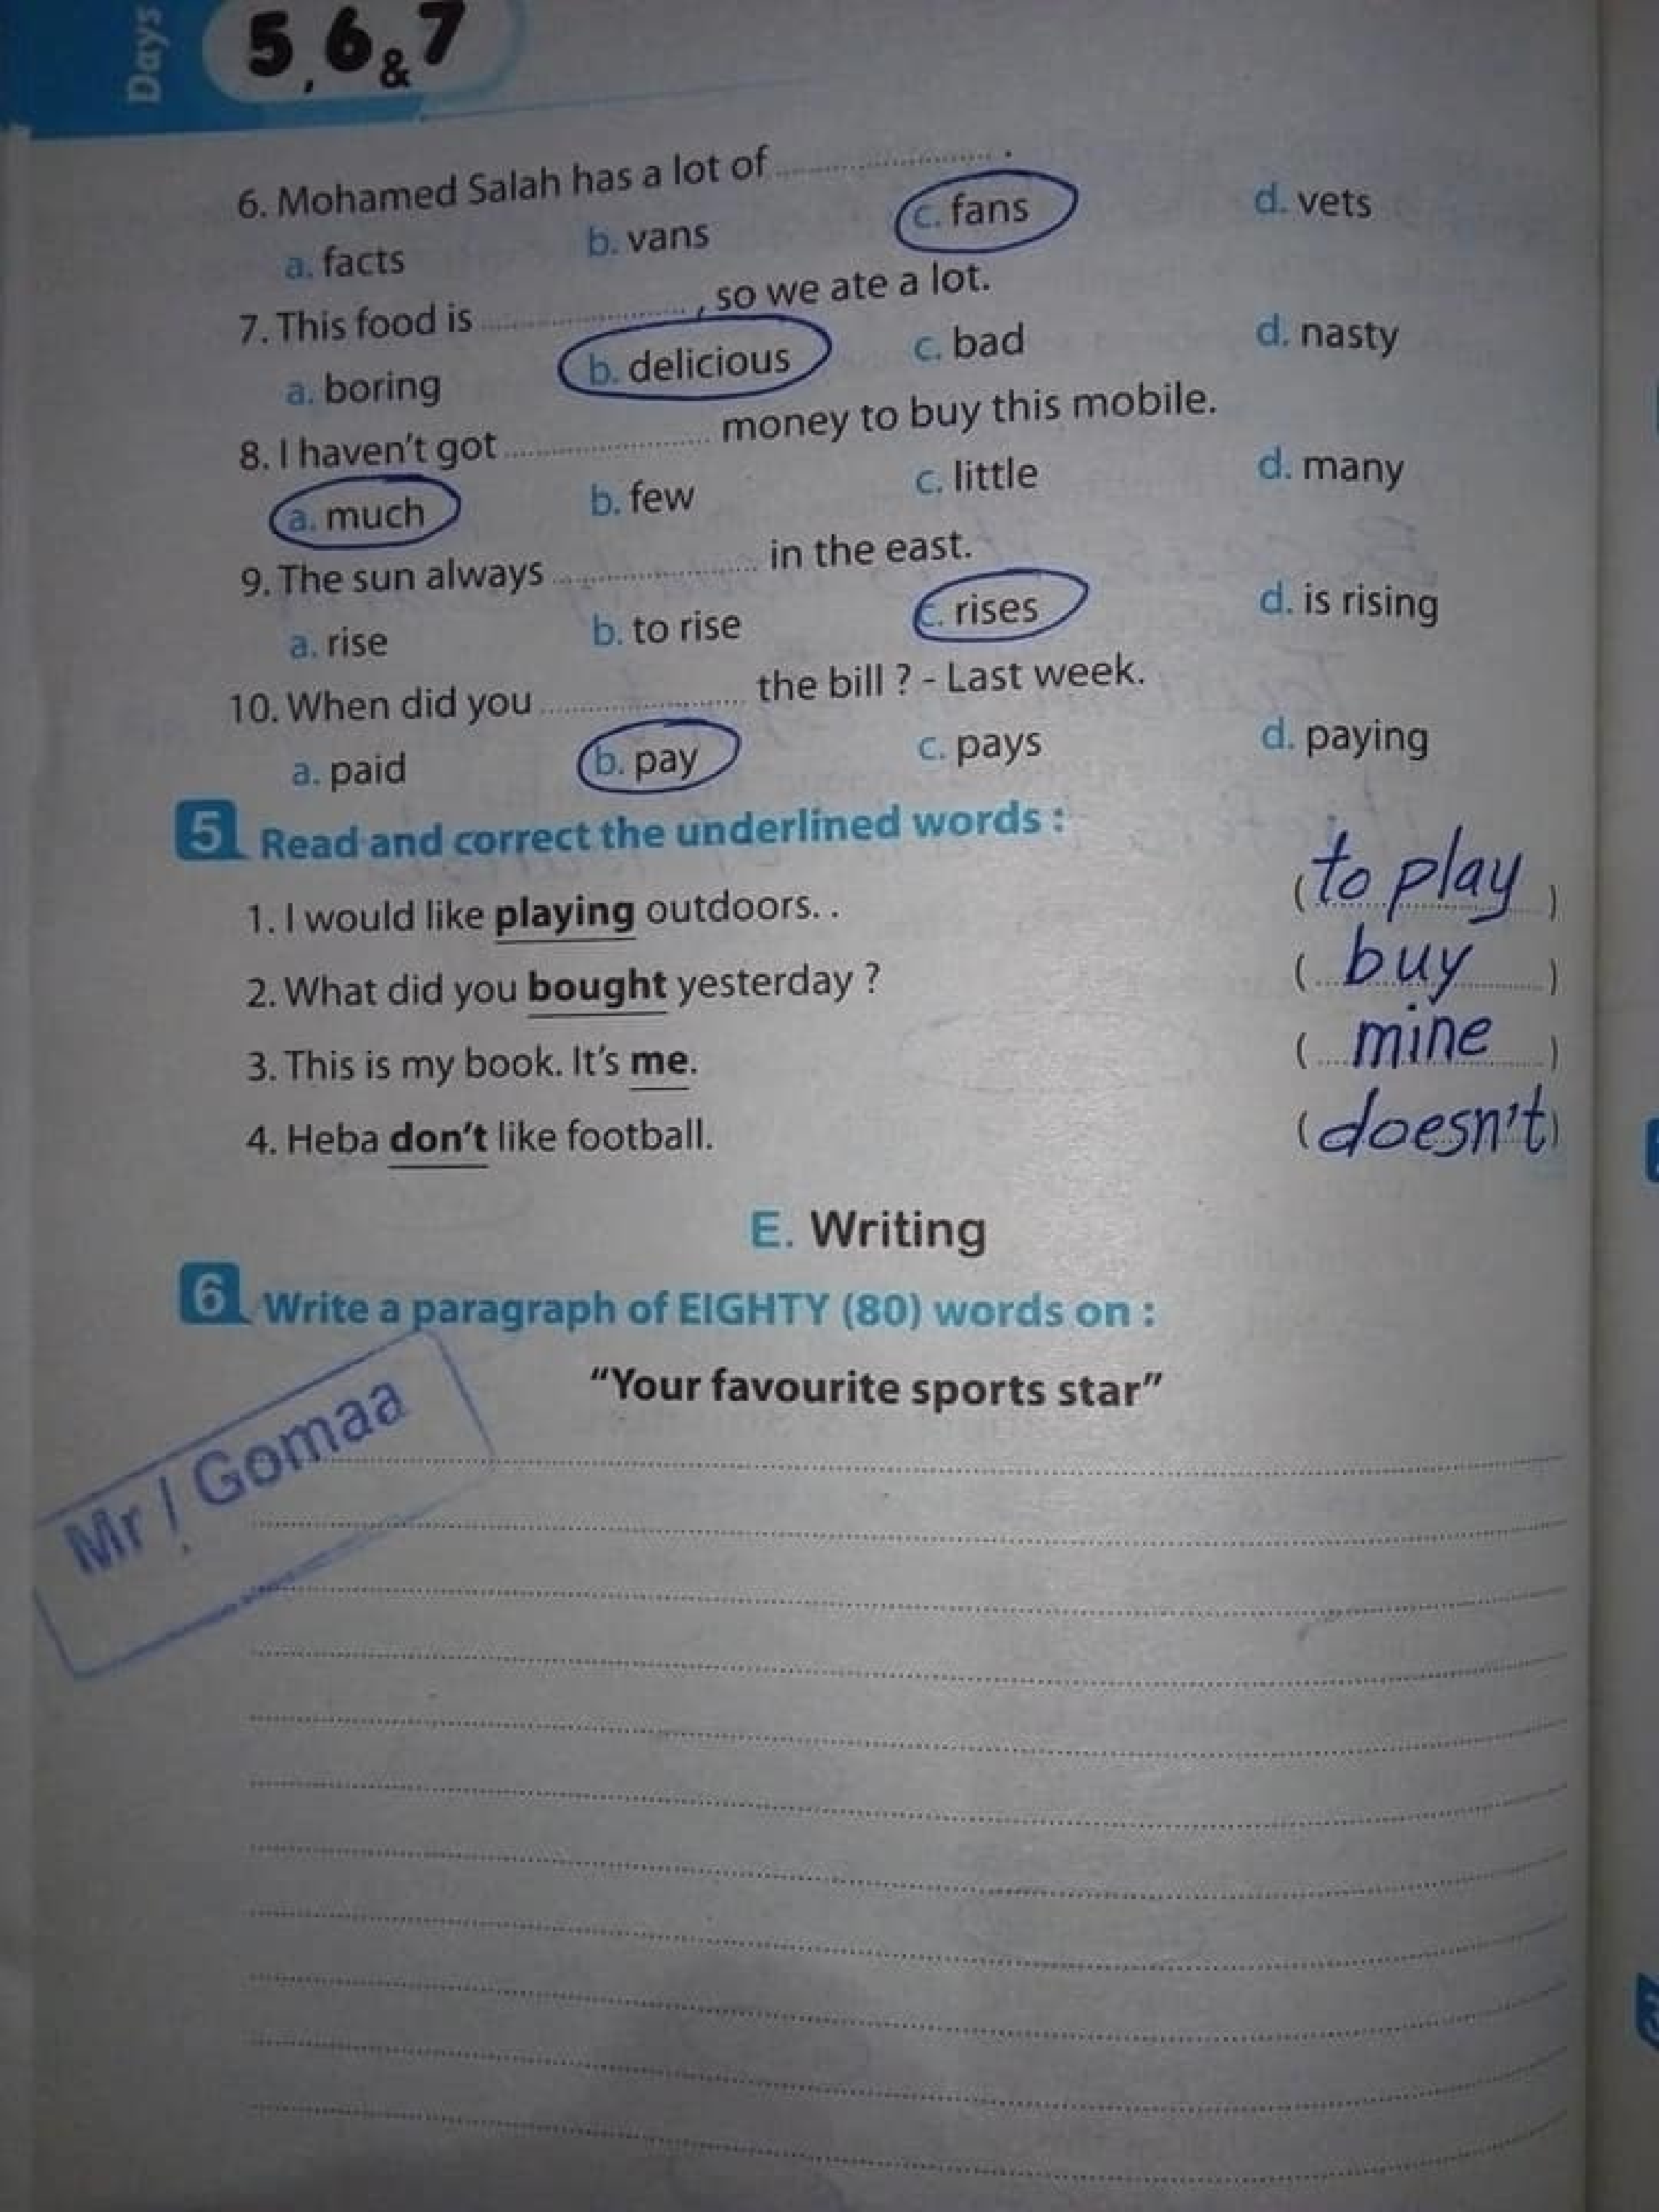 Days 5, 6 & 7
6. Mohamed Salah has a lot of ........................ .
a. facts b. vans c. fans d. vets
7. This food is ........................ , so we ate a lot.
a. boring b. delicious c. bad d. nasty
8. I haven't got ........................ money to buy this mobile.
a. much b. few c. little d. many
9. The sun always ........................ in the east.
a. rise b. to rise c. rises d. is rising
10. When did you ........................ the bill ? - Last week.
a. paid b. pay c. pays d. paying
5 Read and correct the underlined words :
1. I would like playing outdoors. . (to play)
2. What did you bought yesterday ? (buy)
3. This is my book. It's me. (mine)
4. Heba don't like football. (doesn't)
E. Writing
6 Write a paragraph of EIGHTY (80) words on :
"Your favourite sports star"
Mr / Gomaa